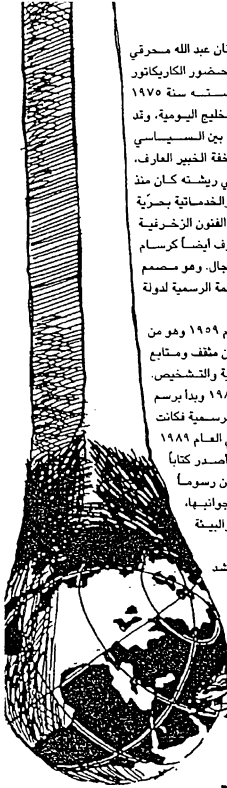 ـان عبد الله محـرقي
حـضور الكاريكاتور
ـســتــه سنة ١٩٧٥
خليج اليومية، وقد
بين الســيــاسي
خفة الخبير العارف،
ي ريشته كـان منذ
والخدماتية بحرّية
الفنون الزخـرفيـة
ـرف أيضـاً كرسـام
ـجال. وهو مـصمم
ـمة الرسمية لدولة
م ١٩٥٩ وهو من
ـن مثقف ومـتابع
ـية والتـشخيص.
١٩٨ وبدأ برسم
لرسـمية فكانت
ي العام ١٩٨٩
أصدر كتاباً
ـن رسومـاً
جوانبـها،
والبيئة
ـشد